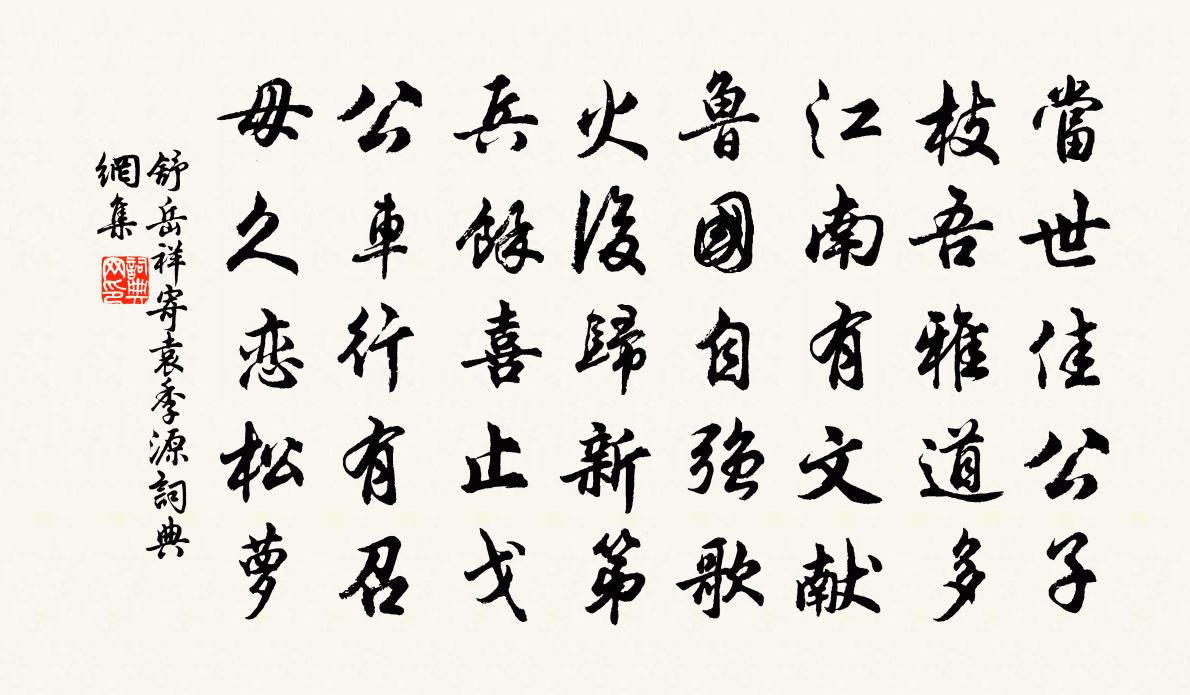 當世佳公子
枝吾雅道多
江南有文献
魯國自強歌
火後歸新第
兵餘喜止戈
公車行有召
毋久恋松萝
舒岳祥寄袁季源詞典
網集
詞典網印